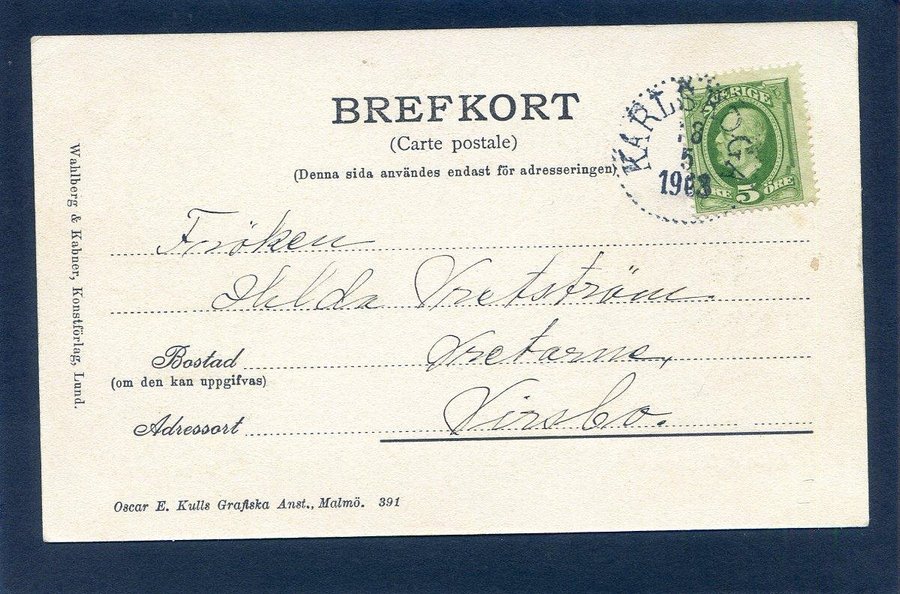 BREFKORT
(Carte postale)
(Denna sida användes endast för adresseringen)
KARLSKOGA
8
5
1903
SVERIGE
5 ÖRE
Fröken
Hilda Vretström.
Bostad
Vretarne,
(om den kan uppgifvas)
Adressort
Virsbo.
Wahlberg & Kabner, Konstförlag, Lund.
Oscar E. Kulls Grafiska Anst., Malmö. 391